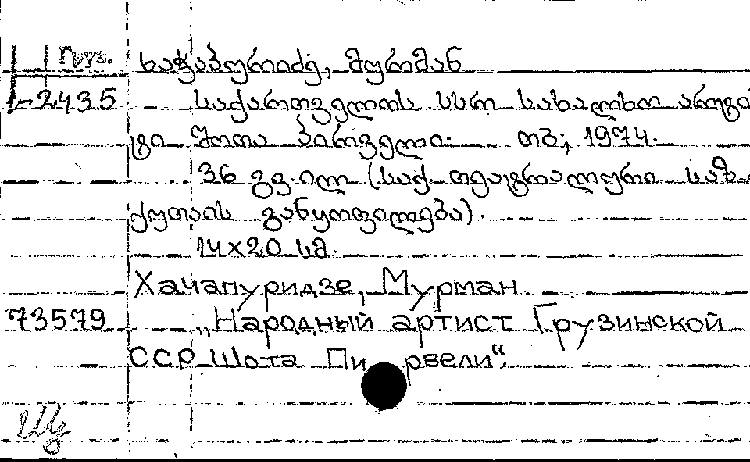 ხაჭაპურიძე, მურმან
2435 საქართველოს სსრ სახალხო არტის
ტი შოთა პირველი. თბ., 1974.
36 გვ. ილ. (საქ. თეატრალური საზ.
ქუთაის. განყოფილება).
14x20 სმ.
Хачапуридзе, Мурман
73579 „Народный артист Грузинской
ССР Шота Пи рвели“.